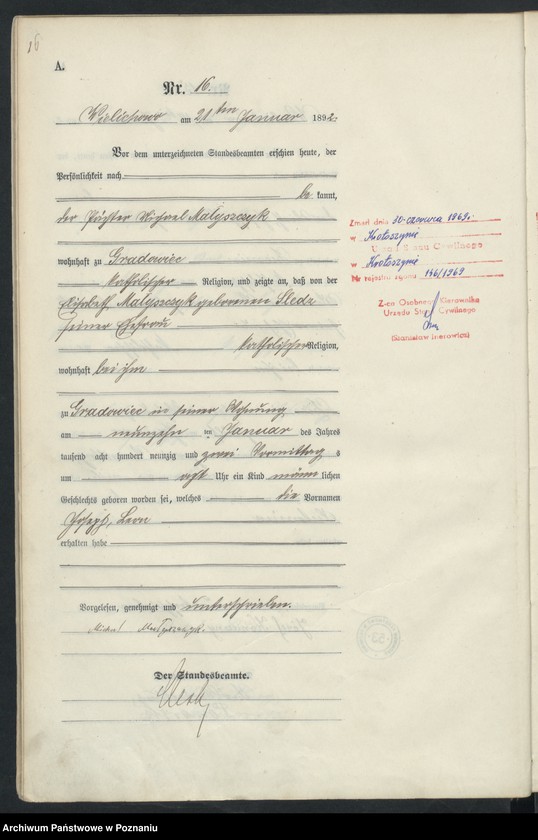 16
A.
Nr. 16.
Wielichowo am 21ten Januar 1892.
Vor dem unterzeichneten Standesbeamten erschien heute, der
Persönlichkeit nach
be kannt,
der Pächter Michael Malyszczyk
wohnhaft zu Gradowice
katholischer Religion, und zeigte an, daß von der
Elisabeth Malyszczyk geborenen Sledz
seiner Ehefrau
katholischer Religion,
wohnhaft bei ihm
zu Gradowice in seiner Wohnung
am neunzehn ten Januar des Jahres
tausend acht hundert neunzig und zwei Vormittag s
um acht Uhr ein Kind männ lichen
Geschlechts geboren worden sei, welches die Vornamen
Joseph, Leon
erhalten habe
Vorgelesen, genehmigt und unterschrieben.
Michael Malyszczyk.
Der Standesbeamte.
Zmarł dnia 30-czerwca 1969r.
w Krotoszynie
Urząd Stanu Cywilnego
w Krotoszynie
Nr rejestru zgonu 146/1969
Z-ca Kierownika
Urzędu Stanu Cywilnego
53
Archiwum Państwowe w Poznaniu